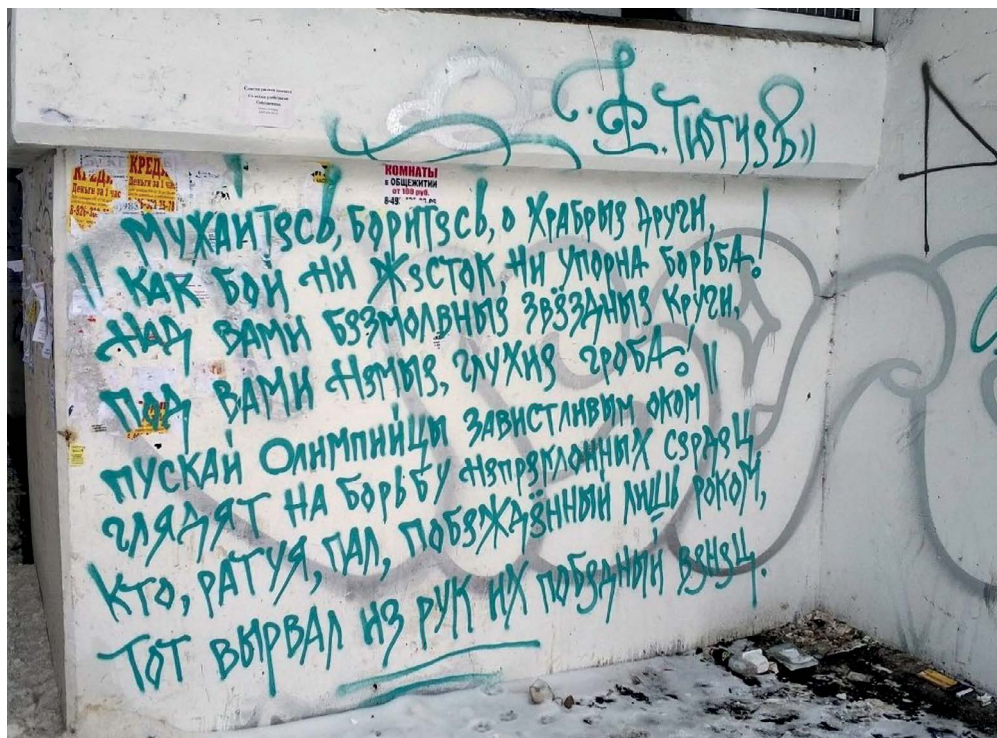 Ф. Тютчев"
КРЕД
Деньги за 1 час
Деньги за 1 час
КОМНАТЫ
в ОБЩЕЖИТИИ
от 100 руб.
"МУЖАЙТЕСЬ, БОРИТЕСЬ, О ХРАБРЫЕ ДРУГИ,
КАК БОЙ НИ ЖЕСТОК, НИ УПОРНА БОРЬБА!
НАД ВАМИ БЕЗМОЛВНЫЕ ЗВЁЗДНЫЕ КРУГИ,
ПОД ВАМИ НЕМЫЕ, ГЛУХИЕ ГРОБА!
ПУСКАЙ ОЛИМПИЙЦЫ ЗАВИСТЛИВЫМ ОКОМ"
ГЛЯДЯТ НА БОРЬБУ НЕПРЕКЛОННЫХ СЕРДЕЦ
КТО, РАТУЯ, ПАЛ, ПОБЕЖДЁННЫЙ ЛИШЬ РОКОМ,
ТОТ ВЫРВАЛ ИЗ РУК ИХ ПОБЕДНЫЙ ВЕНЕЦ.